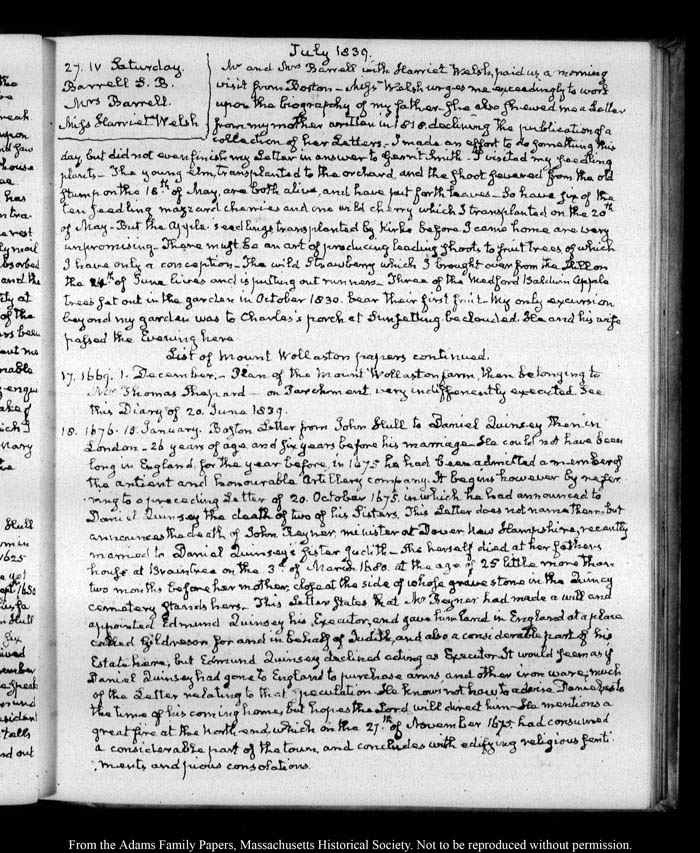 July 1839.
27. IV Saturday.
Barrell S. B.
Mrs Barrell.
Miss Harriet Welsh
Mr and Mrs Barrell with Harriet Welsh, paid us a morning
visit from Boston - Miss Welsh urges me exceedingly to work
upon the biography of my father. She also shewed me a Letter
from my mother written in 1818. declining the publication of a
collection of her Letters. I made an effort to do something this
day, but did not even finish my Letter in answer to Gerrit Smith. I visited my seedling
plants - The young elm, transplanted to the orchard, and the shoot severed from the old
stump on the 18th of May, are both alive, and have put forth leaves - So have six of the
ten seedling mazzard cherries and one wild cherry which I transplanted on the 20th
of May - But the Apple seedlings transplanted by Kirke before I came home are very
unpromising - There must be an art of producing leading shoots to fruit trees of which
I have only a conception - The wild Strawberry which I brought over from the Hill on
the 24th of June lives and is putting out runners - Three of the Medford Baldwin apple
trees set out in the garden in October 1830. bear their first fruit - My only excursion
beyond my garden was to Charles's porch at Sunsetting beclouded. He and his wife
passed the Evening here.
List of Mount Wollaston papers continued.
17. 1669. 1. December. - Plan of the Mount Wollaston farm, then belonging to
Mr Thomas Shepard - on Parchment very indifferently executed. See
this Diary of 20. June 1839.
18. 1676. 15. January. Boston Letter from John Hull to Daniel Quinsey then in
London - 26 years of age and six years before his marriage - He could not have been
long in England, for the year before, in 1675 he had been admitted a member of
the antient and honourable Artillery company. It begins however by refer
ring to a preceding Letter of 20. October 1675. in which he had announced to
Daniel Quinsey the death of two of his Sisters. This Letter does not name them, but
announces the death of John Reyner, minister at Dover, New Hampshire, recently
married to Daniel Quinsey's sister Judith - She herself died at her fathers
house at Braintree on the 3d of March 1680. at the age of 25 little more than
two months before her mother, close at the side of whose grave stone in the Quincy
cemetery stands hers - This Letter states that Mr Reyner had made a will and
appointed Edmund Quinsey his Executor, and gave him land in England at a place
called Gildreson for and in behalf of Judith, and also a considerable part of his
Estate here, but Edmund Quinsey declined acting as Executor. It would seem as if
Daniel Quinsey had gone to England to purchase arms, and other iron ware, much
of the Letter relating to that speculation He knows not how to advise Daniel as to
the time of his coming home, but hopes the Lord will direct him - He mentions a
great fire at the north end, which on the 27th of November 1675 had consumed
a considerable part of the town, and concludes with edifying religious senti
:ments, and pious consolations.
From the Adams Family Papers, Massachusetts Historical Society. Not to be reproduced without permission.